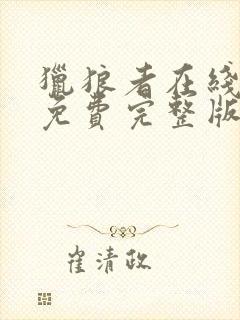 獵狼者在綫
免費完整版
崔清政